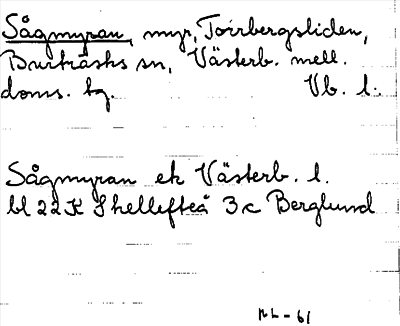 Sågmyran, myr, Torrbergsliden,
Burträsks sn, Västerb. mell.
doms. tg. Vb. l.
Sågmyran ek Västerb. l.
bl 22K Skellefteå 3c Berglund
-61